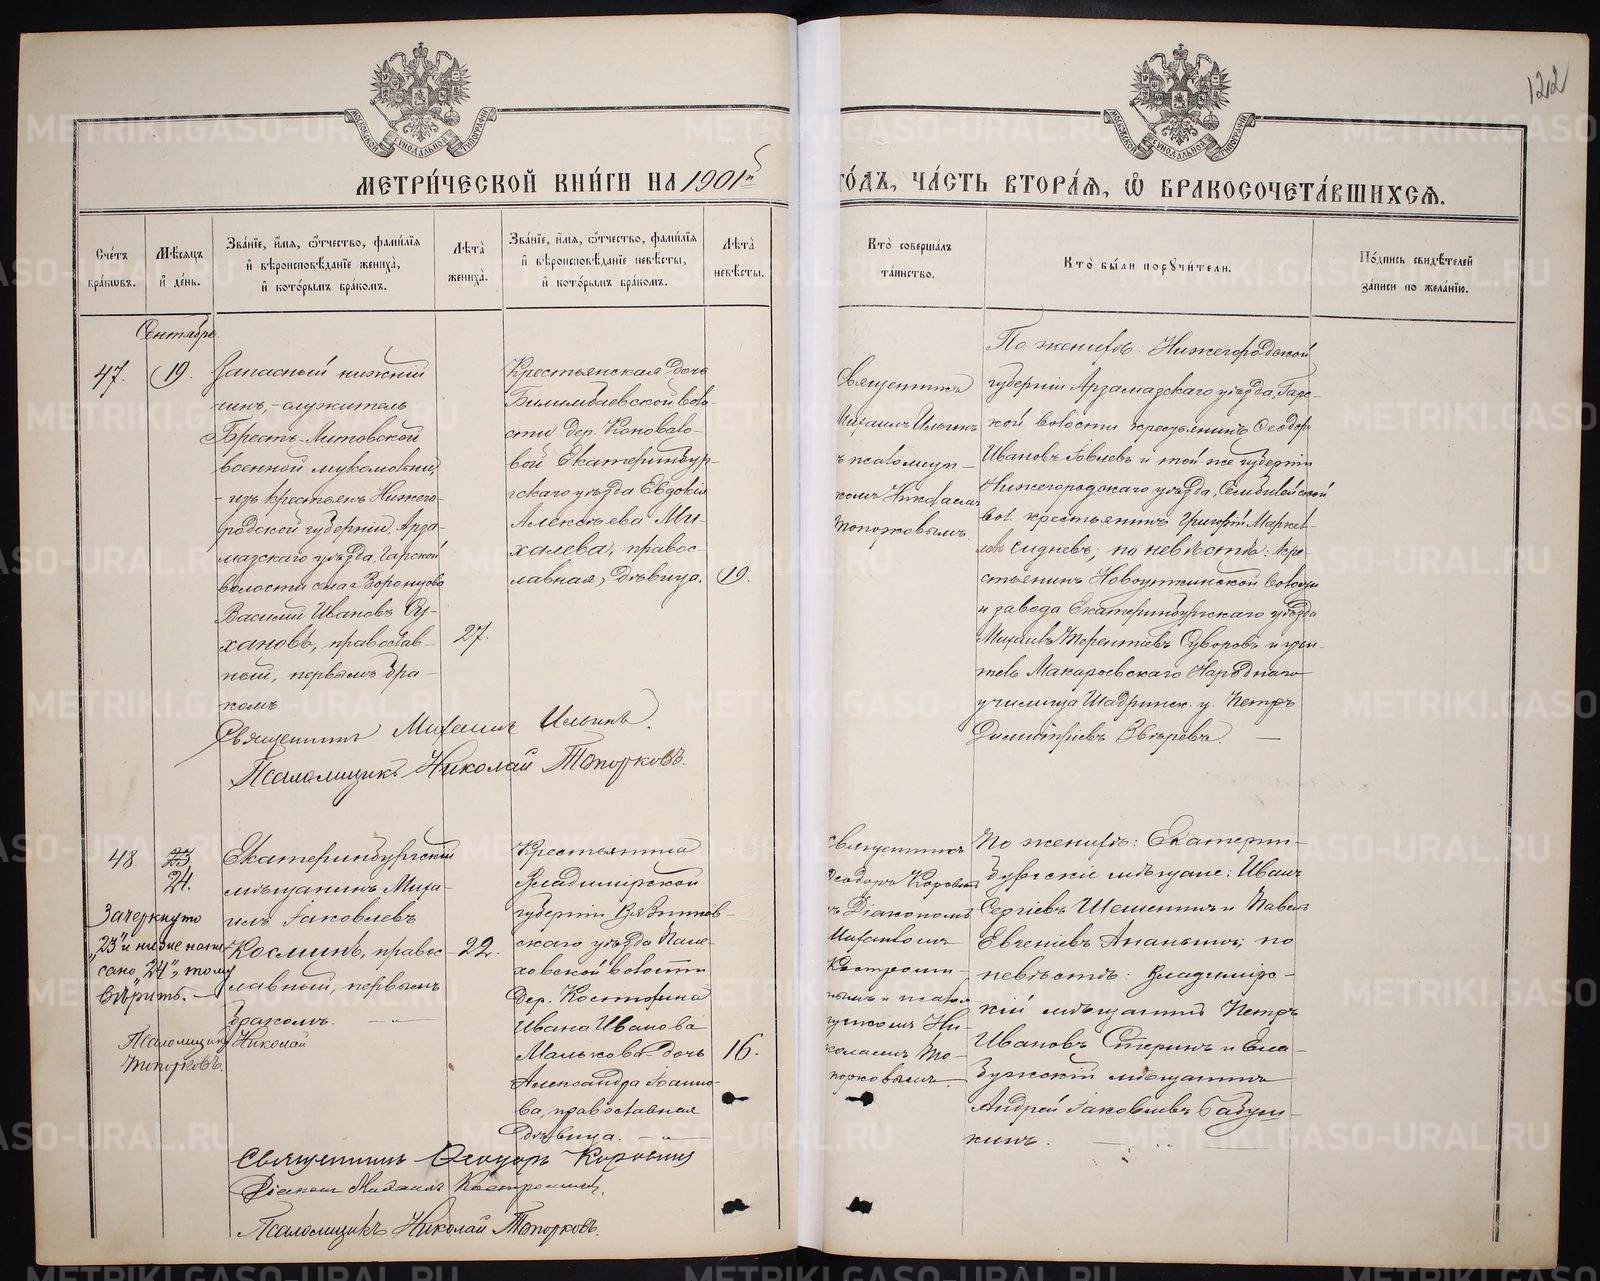 122
МОСКОВСКОЙ СѴНОДАЛЬНОЙ ТИПОГРАФІИ
МОСКОВСКОЙ СѴНОДАЛЬНОЙ ТИПОГРАФІИ
МЕТРИ́ЧЕСКОЙ КНИ́ГИ НА 1901й
ГО́ДЪ, ЧА́СТЬ ВТОРА́Ѧ, Ѡ҆ БРАКОСОЧЕТА́ВШИХСѦ.
Сче́тъ бра́кѡвъ.
Мѣ́сѧцъ и҆ де́нь.
Зва́нїе, и҆́мѧ, ѻ҆́тчество, фамі́лїѧ
и҆ вѣроисповѣ́данїе жениха̀,
и҆ кото́рымъ бра́комъ.
Лѣта̀ жениха̀.
Зва́нїе, и҆́мѧ, ѻ҆́тчество, фамі́лїѧ
и҆ вѣроисповѣ́данїе невѣ́сты,
и҆ кото́рымъ бра́комъ.
Лѣта̀ невѣ́сты.
Кто̀ соверша́лъ
та́инство.
Кто̀ бы́ли поручи́тели.
По́дпись свидѣ́телей
за́писи по жела́нїю.
Сентябрь
47.
19.
Запасный нижній
чинъ, - служитель
Брестъ-Литовской
военной мукомольни,
- изъ крестьянъ Нижего-
родской губерніи, Арза-
мазскаго уѣзда, Гарской
волости села Воронцова
Василій Ивановъ Су-
хановъ, православ-
ный, первымъ бра-
комъ.
27.
Крестьянская дочь
Билимбаевской воло-
сти дер. Коновало-
вой Екатеринбур-
гскаго уѣзда Евдокія
Алексѣева Ми-
халева, правос-
лавная, дѣвица.
19.
Священникъ
Михаилъ Ильинъ
ъ псаломщи-
комъ Николаемъ
Топорковымъ.
По женихѣ: Нижегородской
губерніи Арзамазскаго уѣзда, Гарс-
кой волости крестьянинъ Ѳеодоръ
Ивановъ Іовлевъ и той же губерніи
Нижегородскаго уѣзда,
вол. крестьянинъ Григорій Маркел-
ловъ Сидневъ; по невѣстѣ: кре-
стьянинъ Новоуткинской волости
и завода Екатеринбургскаго уѣзда
Михаилъ Терентіевъ Суворовъ и учи-
тель Макарьевскаго Народнаго
училища Шадринск. у. Петръ
Димитріевъ Звѣревъ.
Священникъ Михаилъ Ильинъ.
Псаломщикъ Николай Топорковъ.
48
23
24.
Зачеркнуто
„23" и ниже напи-
сано „24", тому
вѣрить.
Псаломщикъ Николай
Топорковъ.
Екатеринбургскій
мѣщанинъ Миха-
илъ Іаковлевъ
Косминъ, правос-
лавный, первымъ
бракомъ.
22.
Крестьянина
Владимірской
губерніи Вязников-
скаго уѣзда Пале-
ховской волости
Дер. Костюхина
Ивана Иванова
Малькова дочь
Александра Іоанно-
ва, православная
дѣвица.
16.
Священникъ
Ѳеодоръ Коровинъ
ъ Діакономъ
Михаиломъ
Костроми-
нымъ и псалом
щикомъ Ни-
колаемъ То-
порковымъ.
По женихѣ: Екатерин-
бургскіе мѣщане: Иванъ
Сергіевъ Шешенинъ и Павелъ
Евгеніевъ Ананьинъ; по
невѣстѣ: Владимірс-
кій мѣщанинъ Петръ
Ивановъ Стеринъ и Ела-
бужскій мѣщанинъ
Андрей Іаковлевъ Бабуш-
кинъ.
Священникъ Ѳеодоръ Коровинъ
Діаконъ Михаилъ Костроминъ.
Псаломщикъ Николай Топорковъ.
METRIKI.GASO-URAL.RU